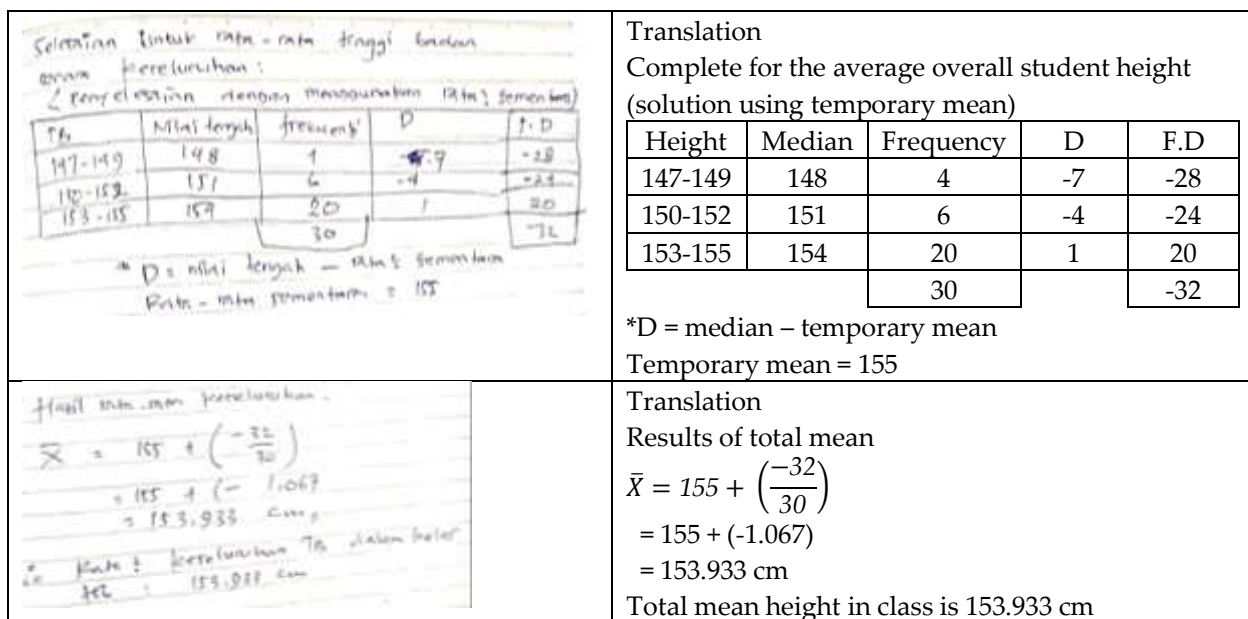 Selesaian Untuk rata-rata tinggi badan
keseluruhan :
( penyelesaian dengan menggunakan rata² sementara)
TB Nilai tengah frekuensi D F.D
147-149 148 4 -7 -28
150-152 151 6 -4 -24
153-155 154 20 1 20
30 -32
* D = nilai tengah - rata² sementara
Rata-rata sementara = 155
Translation
Complete for the average overall student height
(solution using temporary mean)
Height Median Frequency D F.D
147-149 148 4 -7 -28
150-152 151 6 -4 -24
153-155 154 20 1 20
30 -32
*D = median – temporary mean
Temporary mean = 155
Hasil rata-rata keseluruhan.
X̄ = 155 + (-32/30)
= 155 + (- 1.067
= 153.933 cm
∴ Rata² keseluruhan TB dalam kelas
153.933 cm
Translation
Results of total mean
X̄ = 155 + (−32/30)
= 155 + (-1.067)
= 153.933 cm
Total mean height in class is 153.933 cm